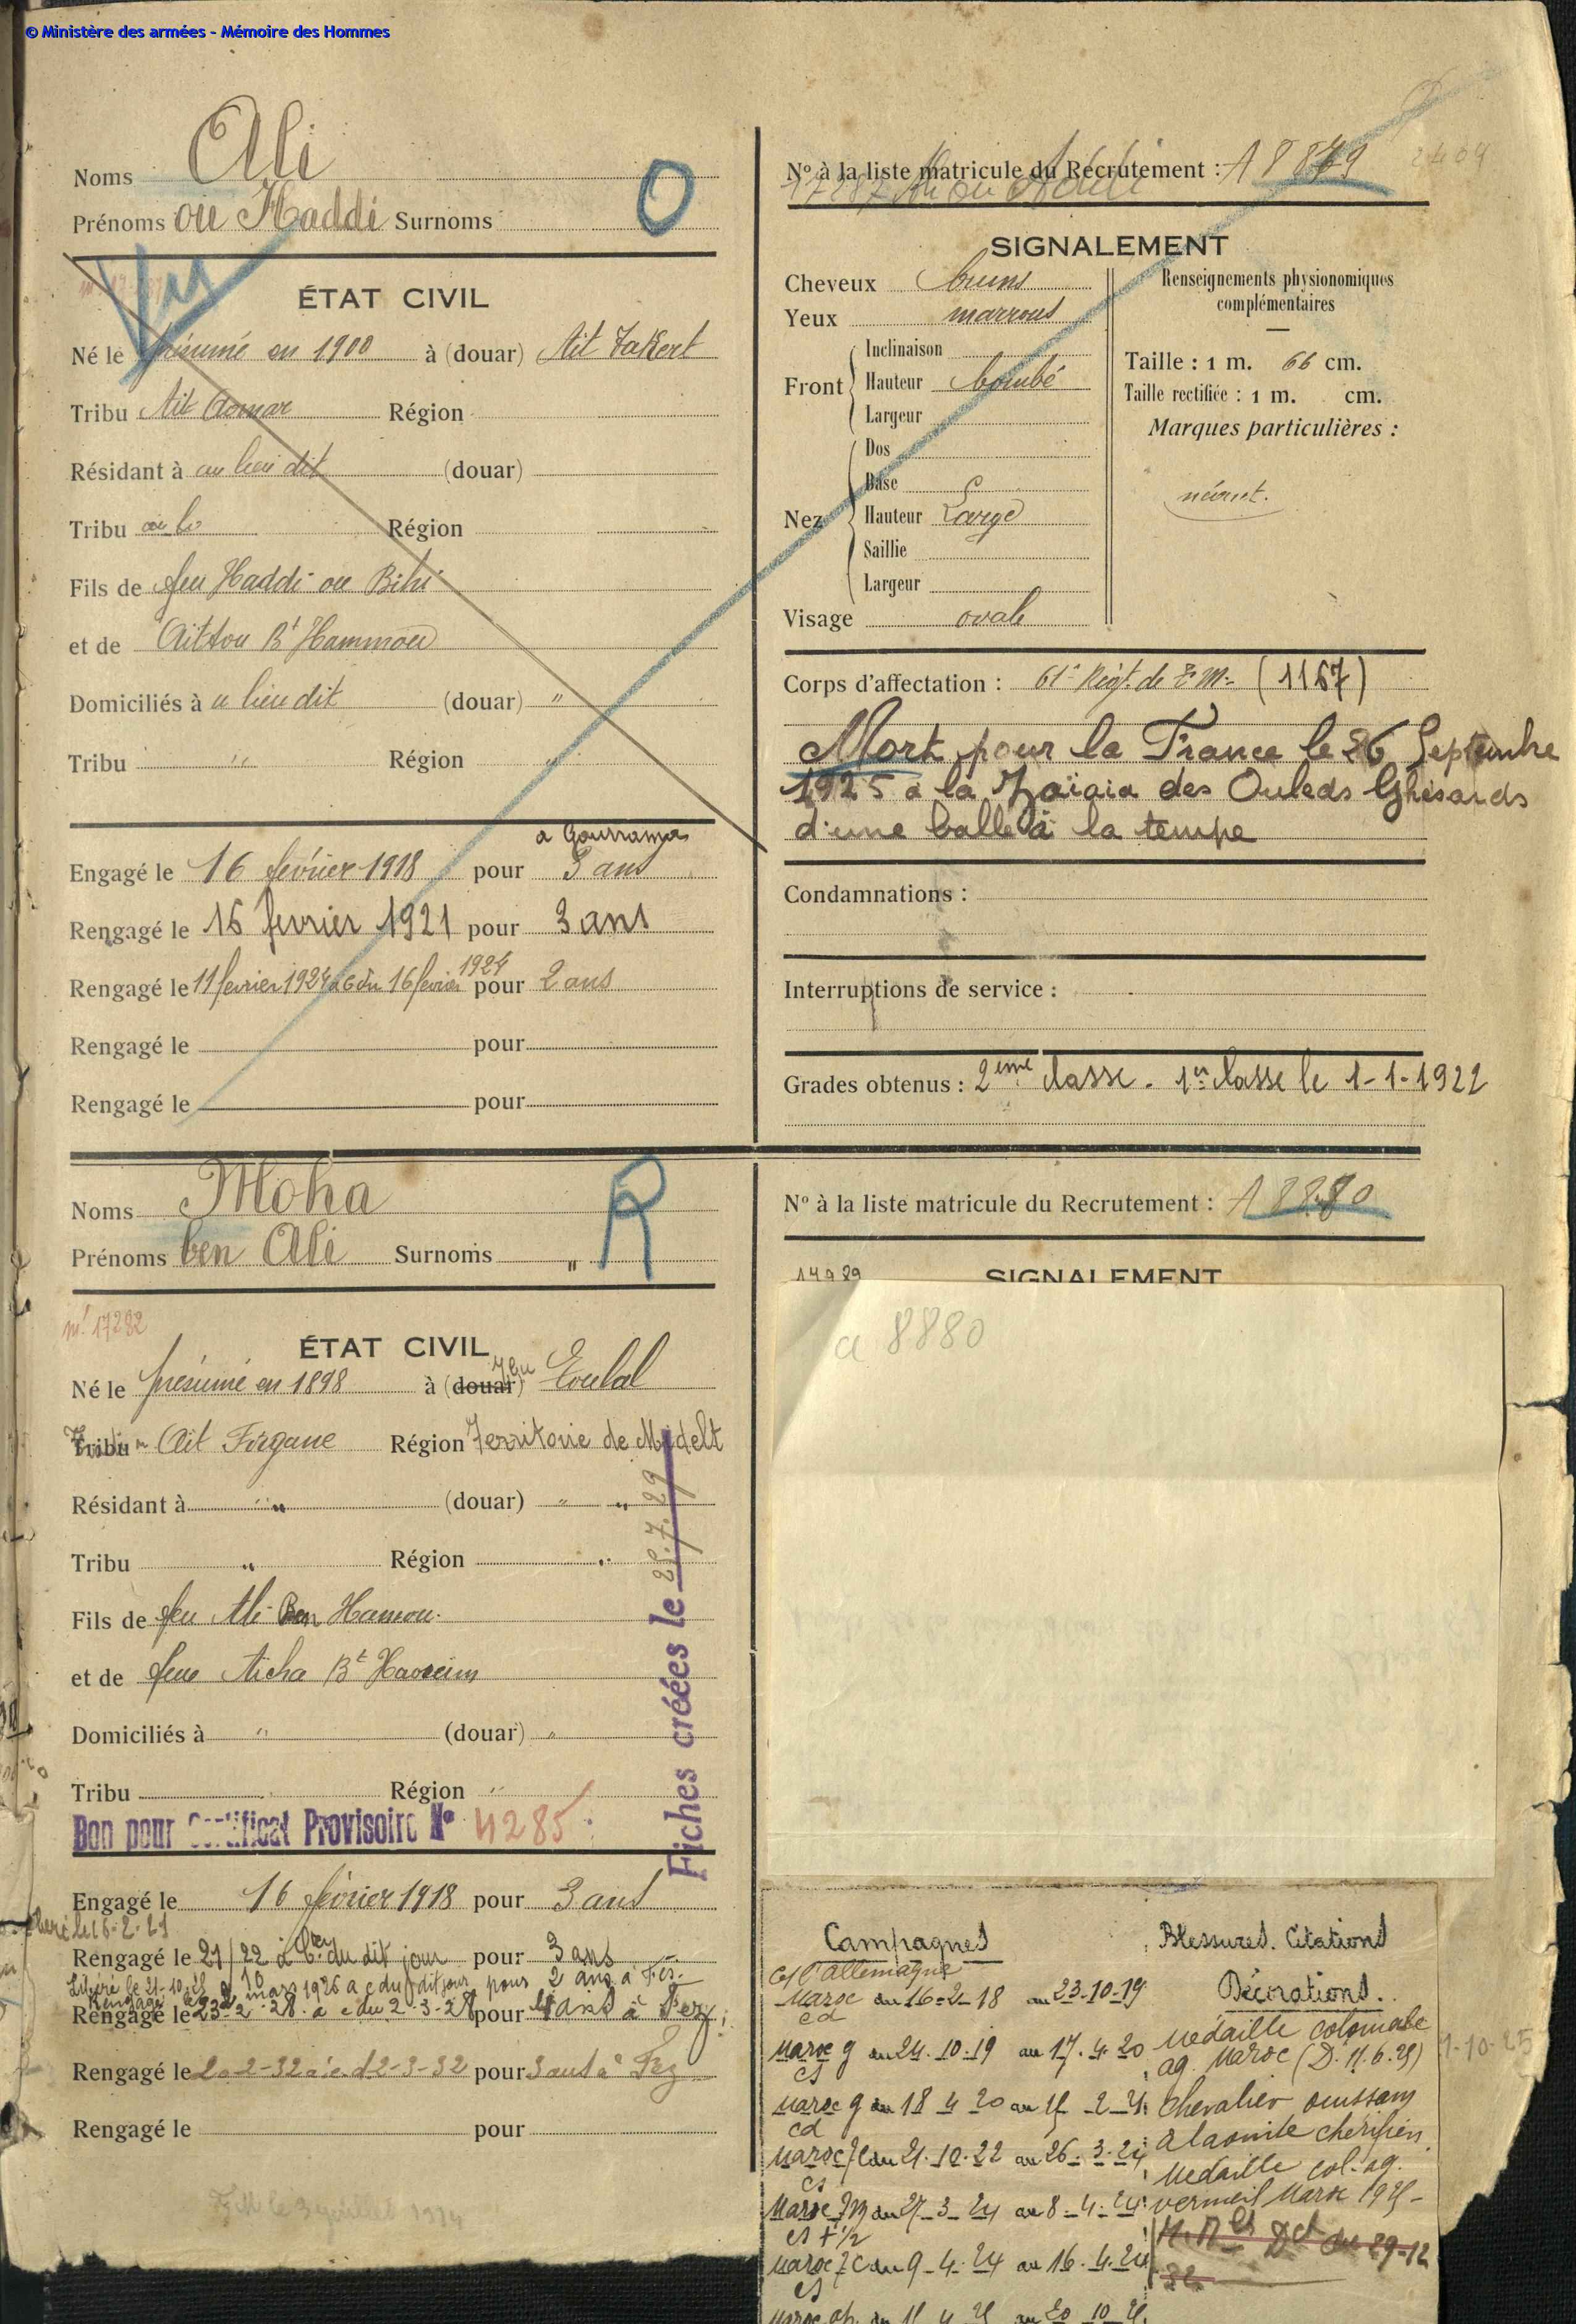 © Ministère des armées - Mémoire des Hommes
Noms Ali
Prénoms ou Haddi Surnoms
O
Vu
ÉTAT CIVIL
Né le présumé en 1900 à (douar) Ait
Tribu Ait Aomar Région
Résidant à au lieu dit (douar)
Tribu Région
Fils de feu Haddi ou Bihi
et de Aittou Bt Hammou
Domiciliés à a lieu dit (douar) "
Tribu " Région "
Engagé le 16 février 1918 pour 3 ans
Rengagé le 16 fevrier 1921 pour 3 ans
Rengagé le 11 fevrier 1924 16 fevrier 1924 pour 2 ans
Rengagé le pour
Rengagé le pour
No à la liste matricule du Recrutement : 18879
SIGNALEMENT
Cheveux bruns
Yeux marrons
Front
Inclinaison
Hauteur bombé
Largeur
Nez
Dos
Base
Hauteur Large
Saillie
Largeur
Visage ovale
Renseignements physionomiques
complémentaires
Taille : 1 m. 66 cm.
Taille rectifiée : 1 m. cm.
Marques particulières :
néant.
Corps d'affectation : 61e Régt. de (1167)
Mort pour la France le 26 Septembre
1925 à la des Ouleds
d'une balle à la tempe
Condamnations :
Interruptions de service :
Grades obtenus : 2ème classe - 1re classe le 1-1-1922
Noms Moha
Prénoms ben Ali Surnoms "
R
mle 17282
ÉTAT CIVIL
Né le présumé en 1898 à (douar)
Tribu Ait Région Territoire de Midelt
Résidant à " (douar) " "
Tribu " Région "
Fils de feu Ali Ben Hamou.
et de feue Aicha Bt
Domiciliés à " (douar) "
Tribu Région "
Bon pour Certificat Provisoire No 4285
Fiches créées le 25.7.29
Engagé le 16 février 1918 pour 3 ans
Rengagé le 21/22 à cter du dit jour pour 3 ans
mars 1926 a c du dit jour pour 2 ans à Fès.
Rengagé le 23-2-28 a c du 2-3-28 pour 4 ans à Fez
Rengagé le 20-2-32 à c. d 2-3-32 pour 3 ans à Fez
Rengagé le pour
No à la liste matricule du Recrutement : 18880
14989 SIGNALEMENT
a 8880
Campagnes
l'allemagne
Maroc du 16-2-18 au 23-10-19
cd
Maroc g du 24.10.19 au 17.4.20
cs
Maroc g du 18 4 20 au
cd
Maroc du 21.10.22 au 26.3.24
cs
Maroc du 27-3-24 au 8-4-24
cs + ½
Maroc du 9-4-24 au 16.4.24
cs
Blessures. Citations
Décorations.
Médaille coloniale
ag. Maroc
chevalier ouissam
alaouite chérifien.
Médaille col. ag.
vermeil Maroc 1925-
du 29-12
32
1-10-25